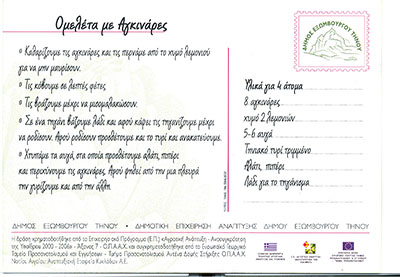 Ομελέτα με Αγκινάρες
Καθαρίζουμε τις αγκινάρες και τις περνάμε από το χυμό λεμονιού
για να μην μαυρίσουν.
Τις κόβουμε σε λεπτές φέτες
Τις βράζουμε μέχρι να μισομαλακώσουν.
Σε ένα τηγάνι βάζουμε λάδι και αφού κάψει τις τηγανίζουμε μέχρι
να ροδίσουν. Αφού ροδίσουν προσθέτουμε και το τυρί και ανακατεύουμε.
Χτυπάμε τα αυγά, στα οποία προσθέτουμε αλάτι, πιπέρι
και περιχύνουμε τις αγκινάρες. Αφού ψηθεί από τη μια πλευρά
την γυρίζουμε και από την άλλη.
ΔΗΜΟΣ ΕΞΩΜΒΟΥΡΓΟΥ ΤΗΝΟΥ
Υλικά για 4 άτομα
8 αγκινάρες
χυμό 2 λεμονιών
5-6 αυγά
Τηνιακό τυρί τριμμένο
Αλάτι, πιπέρι
Λάδι για το τηγάνισμα
ΔΗΜΟΣ ΕΞΩΜΒΟΥΡΓΟΥ ΤΗΝΟΥ • ΔΗΜΟΤΙΚΗ ΕΠΙΧΕΙΡΗΣΗ ΑΝΑΠΤΥΞΗΣ ΔΗΜΟΥ ΕΞΩΜΒΟΥΡΓΟΥ ΤΗΝΟΥ
Η δράση χρηματοδοτήθηκε από το Επιχειρησιακό Πρόγραμμα (Ε.Π.) «Αγροτική Ανάπτυξη - Ανασυγκρότηση
της Υπαίθρου 2000 - 2006» - Άξονας 7 - Ο.Π.Α.Α.Χ. και συγχρηματοδοτήθηκε από το Ευρωπαϊκό Γεωργικό
Ταμείο Προσανατολισμού και Εγγυήσεων - Τμήμα Προσανατολισμού
Νοτίου Αιγαίου Αναπτυξιακή Εταιρεία Κυκλάδων Α.Ε.